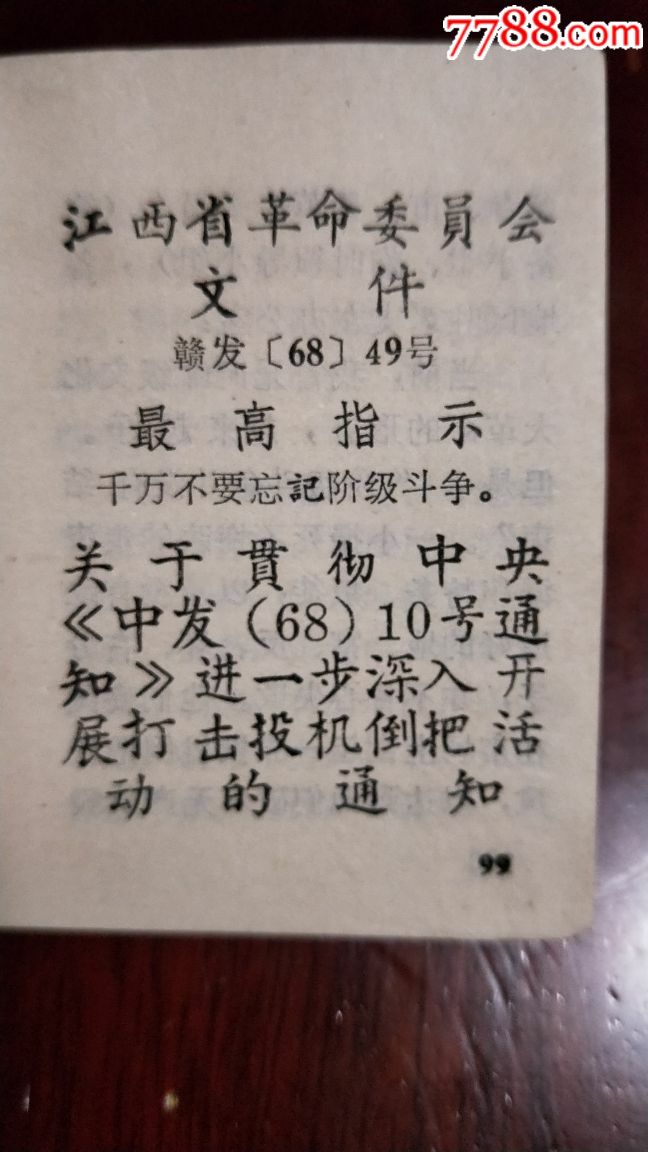 7788.com
江西省革命委員会
文件
赣发〔68〕49号
最高指示
千万不要忘記阶级斗争。
关于貫彻中央
《中发(68)10号通
知》进一步深入开
展打击投机倒把活
动的通知
99